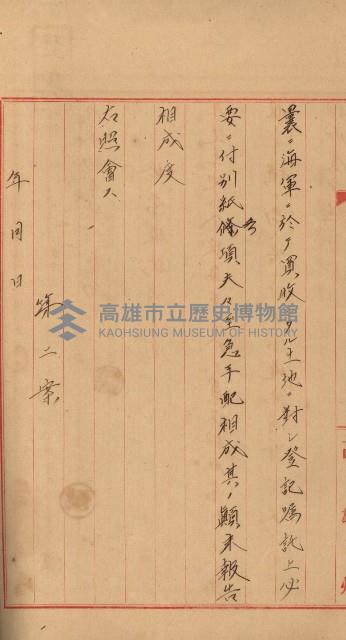 曩ニ海軍ニ於テ買収シタル土地ニ対シ登記嘱託上必
要ニ付別紙條項夫々至急手配相成其ノ顛末報告
相成度
右照會ス
年 月 日
第二案
高雄市立歷史博物館
KAOHSIUNG MUSEUM OF HISTORY
高雄州